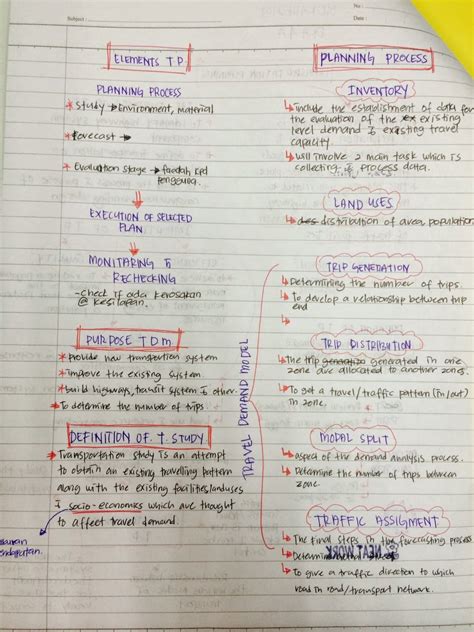 No :
Subject :
Date :
ELEMENTS T.P.
PLANNING PROCESS
* Study → Environment, material
* Forecast →
* Evaluation stage → faedah kpd
pengguna.
EXECUTION OF SELECTED
PLAN
MONITARING &
RECHECKING
- Check if ada kerosakan
@ kesilapan.
PURPOSE T.D.M
* provide new transportation system
* improve the existing system.
* build highways, transit system & other.
To determine the number of trips
DEFINITION OF T. STUDY
Transportation study is an attempt
to obtain an existing travelling pattern
along with the existing facilities/landuses
& socio-economics which are thought
to affect travel demand.
PLANNING PROCESS
INVENTORY
include the establishment of data for
the evaluation of the existing
level demand & existing travel
capacity.
will involve 2 main task which is
collecting & process data.
LAND USES
distribution of area population
TRAVEL DEMAND MODEL
TRIP GENERATION
Determining the number of trips.
To develop a relationship between trip
end
TRIP DISTRIBUTION
The trip generation generated in one
zone are allocated to another zones.
To get a travel/traffic pattern (in/out)
in zone.
MODAL SPLIT
aspect of the demand analysis process.
Determine the number of trips between
zone
TRAFFIC ASSIGMENT
The final steps in the forecasting process
To give a traffic direction to which
road in road/transport network.